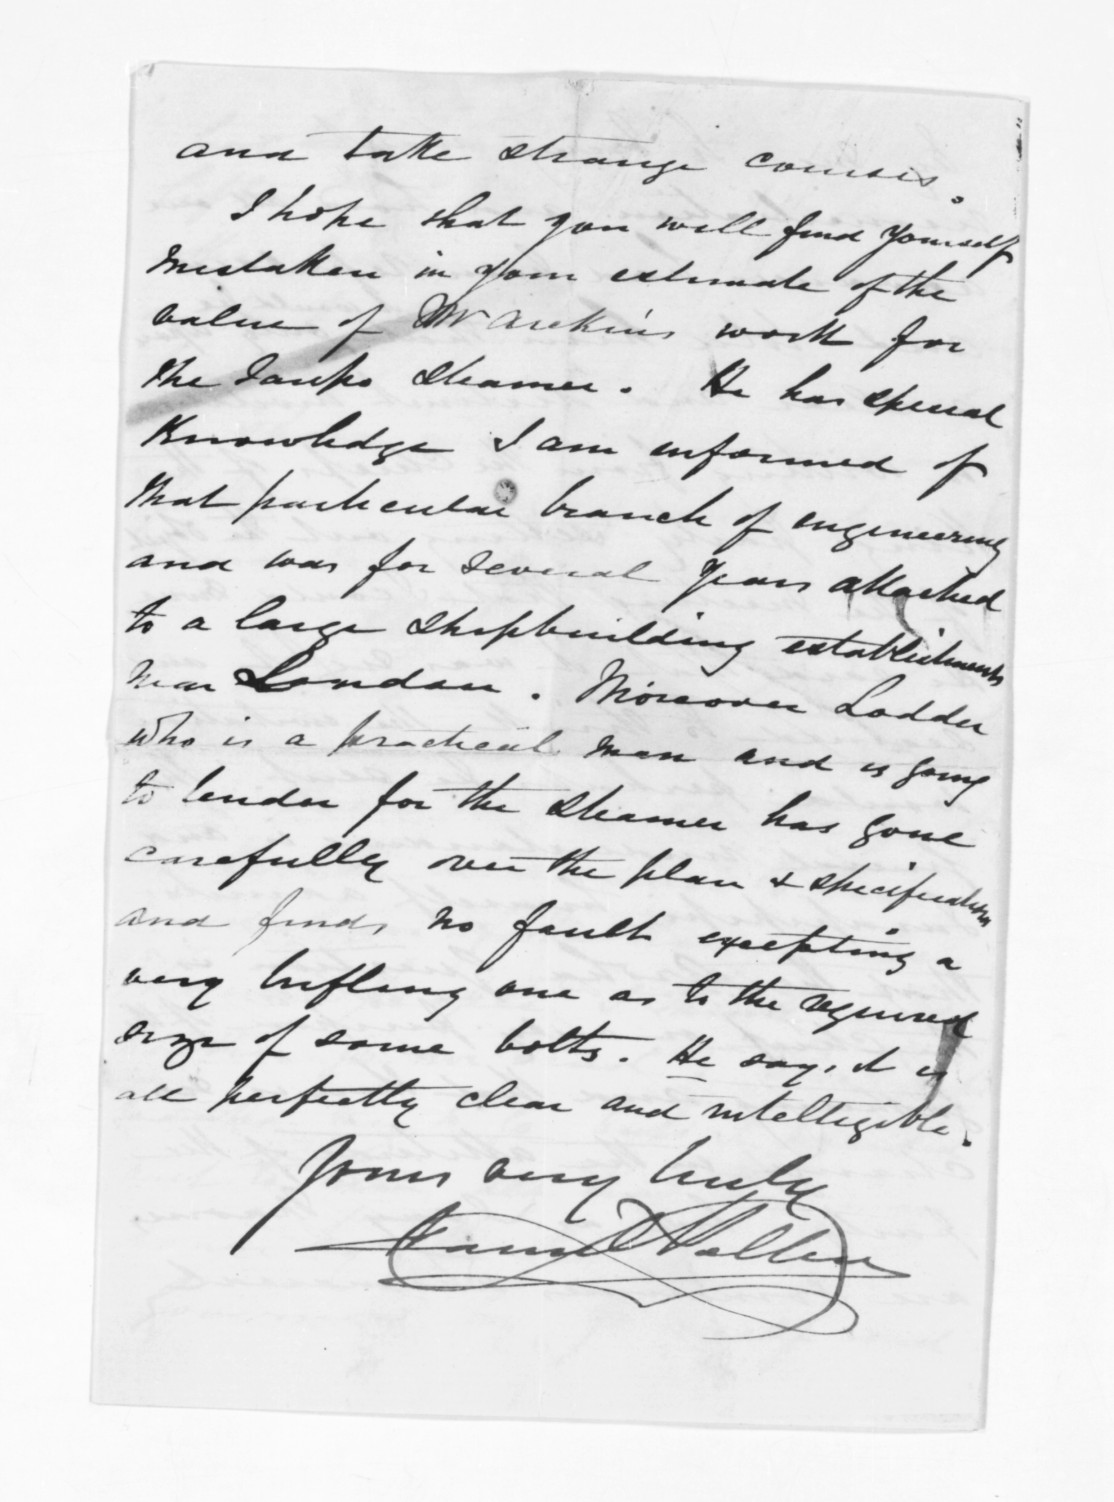 and take strange courses.
I hope that you will find yourself
mistaken in your estimate of the
value of Mr Aitkin's work for
the Taupo Steamer. He has special
Knowledge I am informed of
that particular branch of engineering
and was for several years attached
to a large Shipbuilding establishments
near London. Moreover Lodder
who is a practical man and is going
to tender for the Steamer has gone
carefully over the plan & specifications
and finds no fault excepting a
very trifling one as to the required
size of some bolts. He says it is
all perfectly clear and intelligible.
Yours very truly